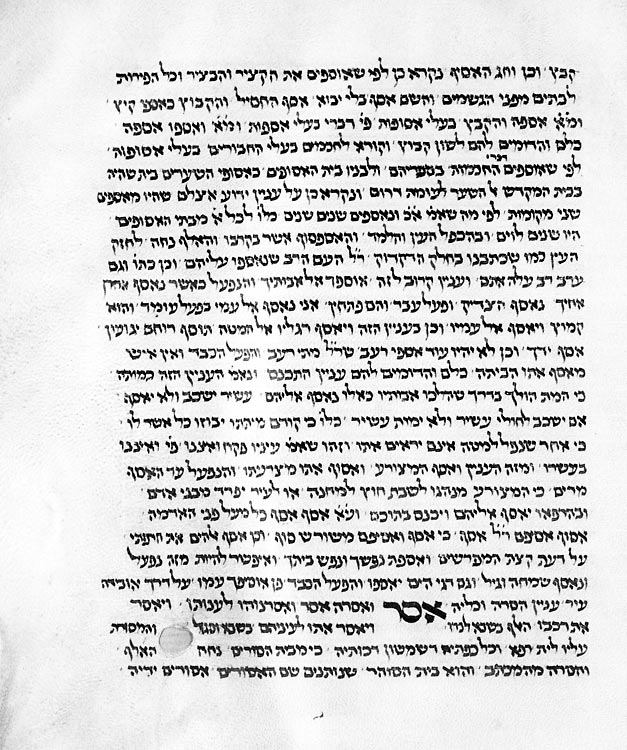 קבץ וכן וחג האסיף נקרא כן לפי שאוספים את הקציר והבציר וכל הפירות
לבתים מפני הגשמים והשם אסף בלי יבוא אסף החסיל והקבוץ כאספי קיץ
ומ'א' אספה והקבץ בעלי אסופות פי' דברי בעלי אספות ומ'א' ואספו אספה
כלם והדומים להם לשון קבוץ וקורא לחכמים בעלי החבורים בעלי אסופות
לפי שאוספים דברי החכמות בספריהם ולבניו בית האסופים באסופי השערים בית שהיה
בבית המקדש על השער לעומת דרום ונקרא כן על ענין ידוע אצלם שהיו מאספים
שני מקומות לפי מה שאמ' אכ' ונאספים שנים שנים כלו' לכל א' מבתי האסופים
היו שנים לוים ובהכפל העין והלמד והאספסוף אשר בקרבו והאלף נחה לחזק
הענין כמו שכתבנו בחלק הדקדוק ר'ל העם הרב שנאספו עליהם וכן כתו' וגם
ערב רב עלה אתם וענין קרוב לזה אוספך אל אבותיך והנפעל כאשר נאסף אהרן
אחיך נאסף הצדיק ופעל עבר והם פתחין אני נאסף אל עמי בפעל עומד והוא
קמוץ ויאסף אל עמיו וכן בענין הזה ויאסף רגליו אל המטה תוסף רוחם יגועון
אסף ידך וכן לא יהיו עוד אספי רעב שר'ל מתי רעב והפעל הכבד ואין איש
מאסף אתו הביתה כלם והדומים להם ענין התכנס ונאמ' הענין הזה במיתה
כי המת הולך בדרך שהלכו אבותיו כאלו נאסף אליהם עשיר ישכב ולא יאסף
אם ישכב לחולי עשיר ולא ימות עשיר כלו' כי קודם מיתתו יבוזו כל אשר לו
כי אחר שנפל למטה אינם יראים אותו וזהו שאמ' עיניו פקח ואיננו פי' ואיננו
בעשרו ומזה הענין ואסף המצורע ואסוף אתו מצרעתו והנפעל עד האסף
מרים כי המצורע מנהגו לשבת חוץ למחנה או לעיר יפרד מבני אדם
ובהרפאו יאסף אליהם ויכנס בתוכם ועוד אסף אסף כל מעל פני האדמה
אסוף אסיפם ר'ל אסף כי אסף ואסיפם משורש סוף וכן אסף אלהים את חרפתי
על דעת קצת המפרשים ואספת נפשך ונפש ביתך ואיפשר להיות מזה נפעל
ונאסף שמחה וגיל וגם דגי הים יאספו והפעל הכבד פן אוסיפך עמו על דרך אובידה
עיר ענין הסרה וכליה אסר ואסרה אסר ואסרנוהו לענותו ויאסר
את רכבו האלף בשוא לבדו ויאסר אתו לעיניהם בשוא וסגול והמסורת
עליו לית רפא וכל כפתים דשמשון דכותיה כי מבית הסורים נחה האלף
וחסרה מהמכתב והוא בית הסוהר שנותנים שם האסורים אסורים ידיה